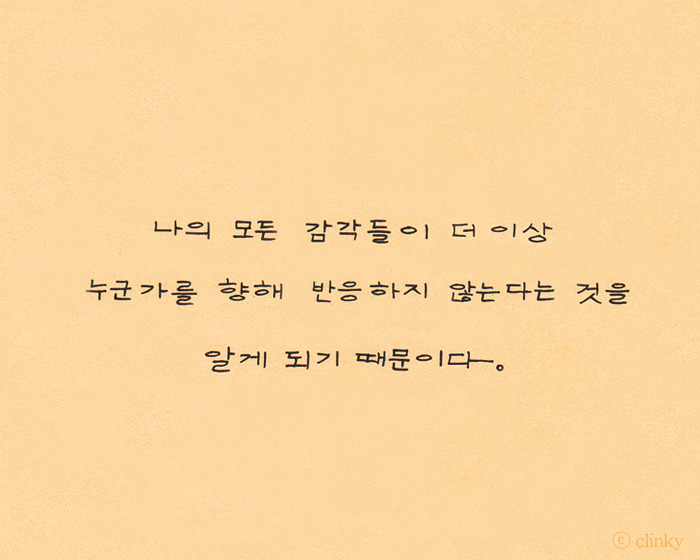 나의 모든 감각들이 더 이상
누군가를 향해 반응하지 않는다는 것을
알게 되기 때문이다.
ⓒ clinky